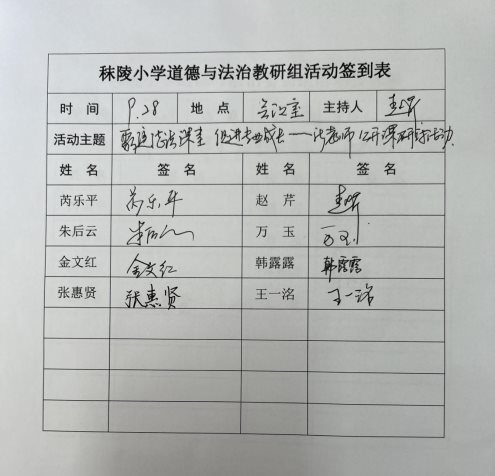 秣陵小学道德与法治教研组活动签到表
时 间 9.28 地 点 会议室 主持人 赵芹
活动主题 法治课堂 促进专业成长——教师公开课研讨活动
姓 名 签 名 姓 名 签 名
芮乐平 芮乐平 赵 芹 赵芹
朱后云 朱后云 万 玉 万玉
金文红 金文红 韩露露 韩露露
张惠贤 张惠贤 王一洺 王一洺